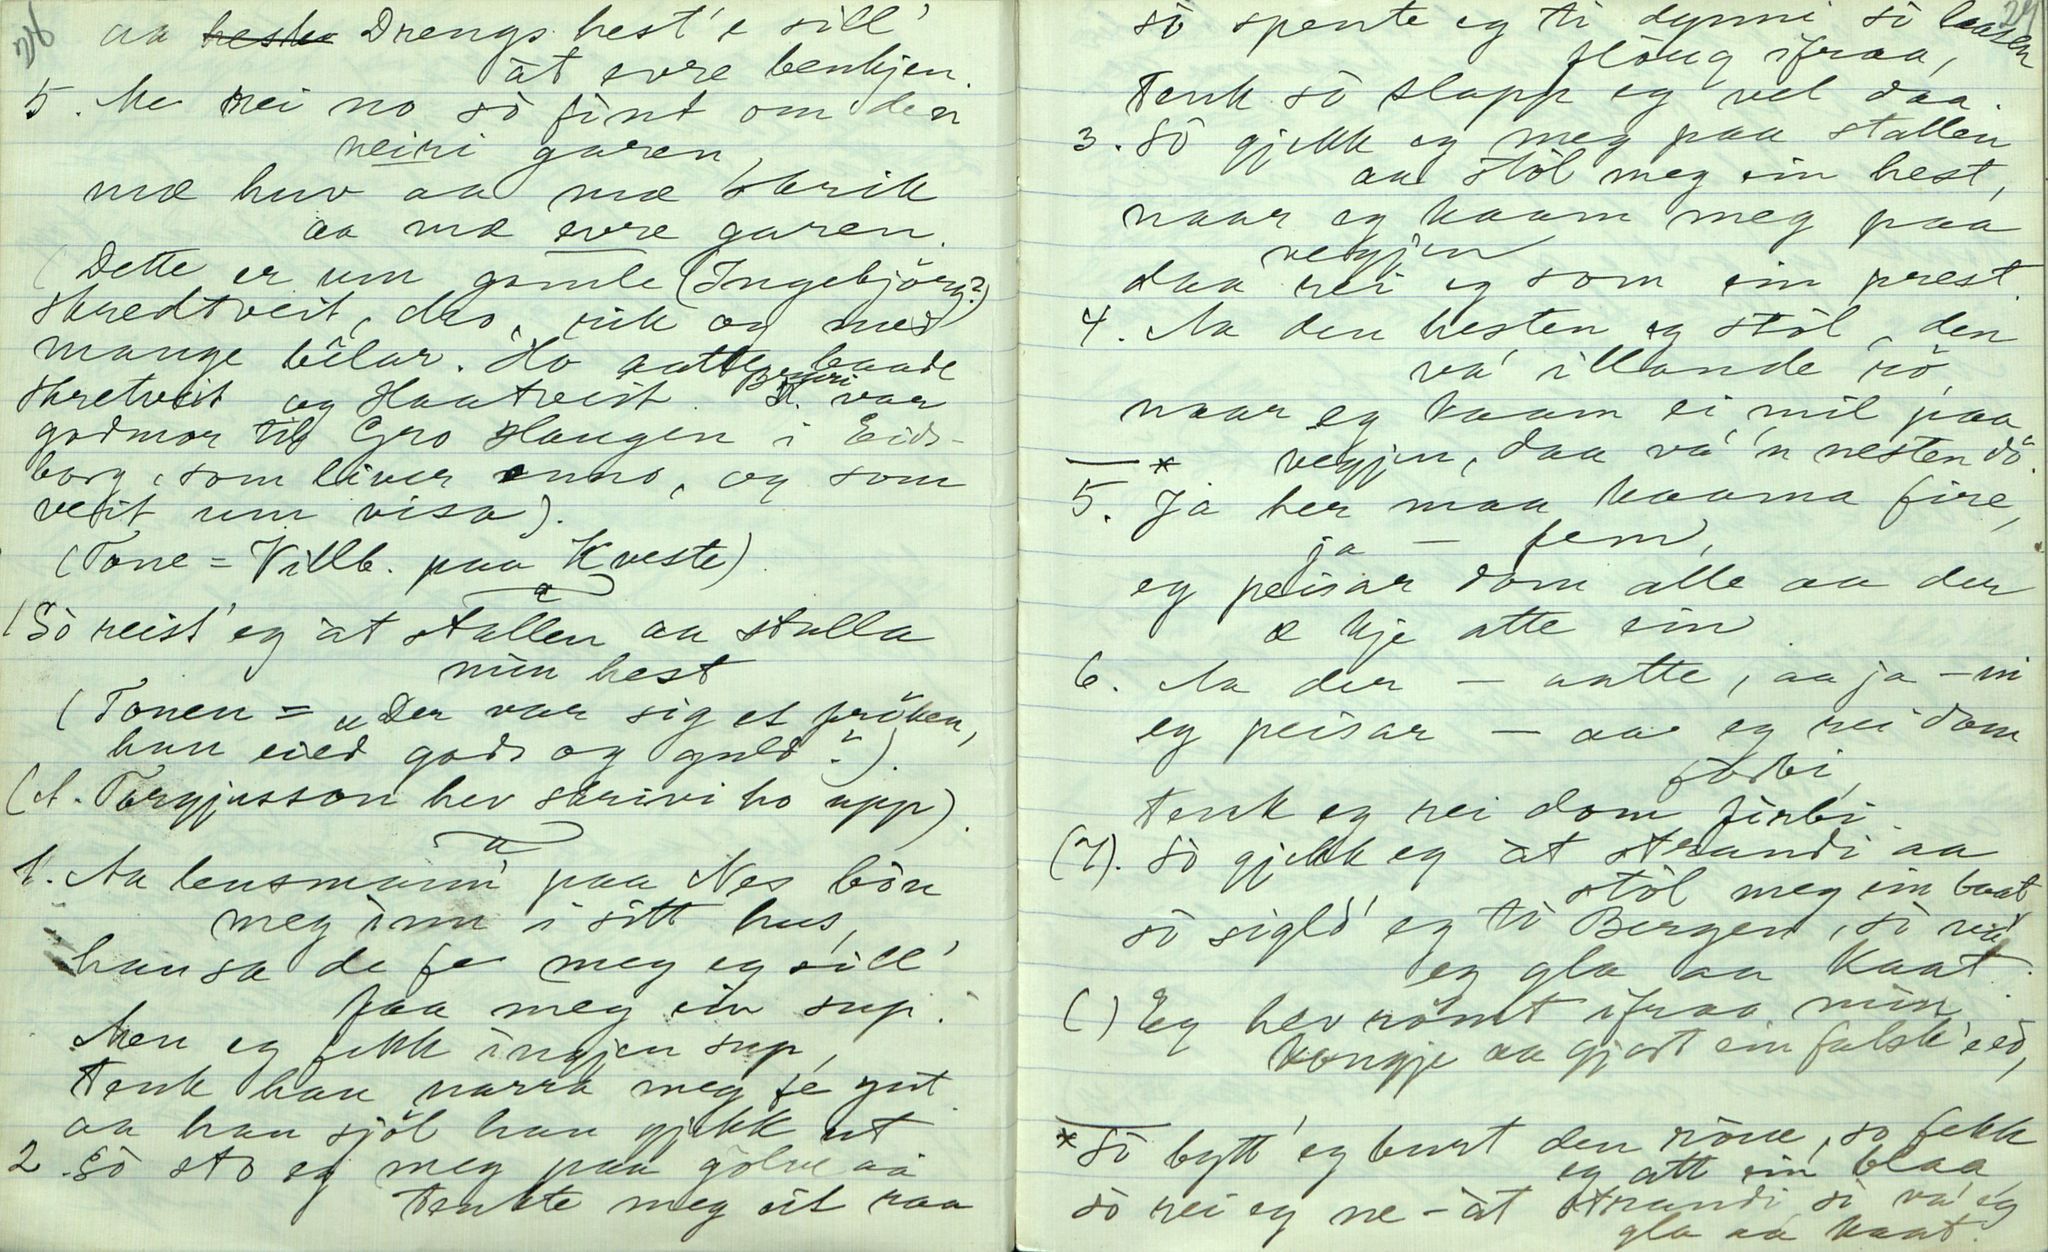 26
aa Drengs hest'e sill'
åt evre benkjen.
5. Me rei no sò fint om den
neiri garen,
mæ huv aa mæ skrik
aa mæ evre garen.
(Dette er um gomle (Ingebjörg?)
Skredtveit, dro, rik og med
mange bêlar. Ho aatte baade
Skretveit og Haatveit. var
godmor til Gro Haugen i Eids-
borg, som liver enno, og som
veit um visa).
(Tone = Villb. paa Kveste)
(Sò reist' eg åt stallen aa stalla
min hest
(Tonen = "Der var sig et fröken,
hun eied gods og guld".)
(A. Torgjusson hev skrivi ho upp).
1. Aa lensmann paa Nes bön
meg inn i sitt hus,
han sa de fe meg eg sill'
faa meg ein sup.
Men eg fekk ingjen sup,
Tenk han narra meg fe gut
aa han sjöl han gjekk ut
2. Sò sto eg meg paa golve aa
tenkte meg eit raa
27
sò spente eg ti dynni sò laasen
floug ifraa,
Tenk sò slapp eg vel daa.
3. Sò gjekk eg meg paa stallen
aa stòl meg ein hest,
naar eg kaam meg paa
vegjen
daa rei eg som ein prest.
4. Aa den hesten eg stòl, den
va' illande rö,
naar eg kaam ei mil paa
* vegjen, daa va' 'n nesten dö.
5. Ja her maa kaama fire,
ja — fem,
eg peisar dom alle aa der
æ kje atte ein
6. Aa der — aatte, aa ja — ni
eg peisar — aa eg rei dom
forbi,
Tenk eg rei dom firbi.
(7). Sò gjekk eg åt strandi aa
stòl meg ein baat
sò sigld' eg ti Bergen, sò va'
eg gla aa kaat.
( ) Eg hev römt ifraa min
kongje aa gjort ein falsk eed,
* Sò bytt' eg burt den röue, so fekk
eg att ein blaa
sò rei eg ne - åt strandi sò va' eg
gla aa kaat.